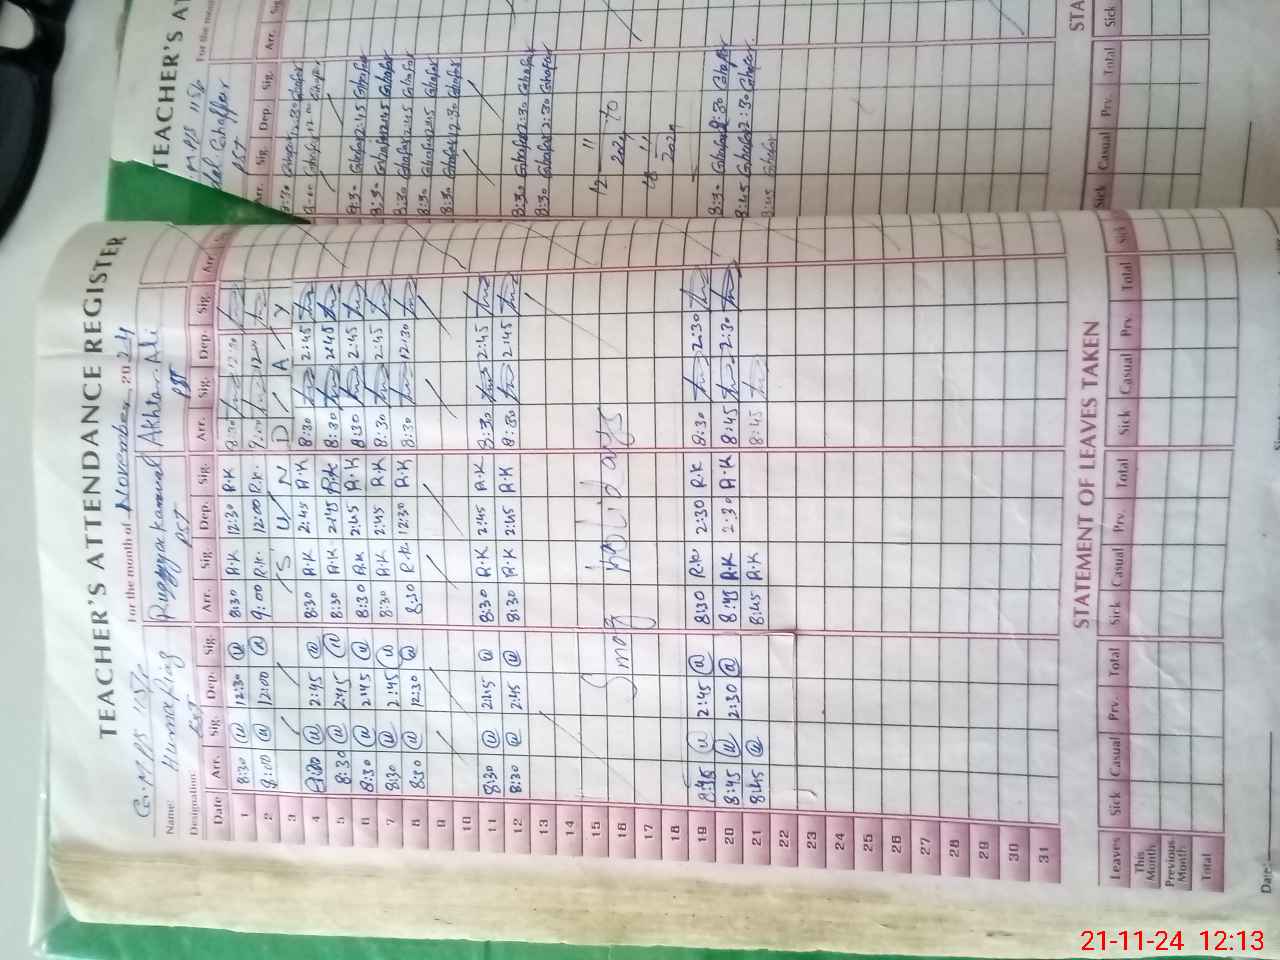 TEACHER'S ATTENDANCE REGISTER
G.M.P.S 115/
For the month of November 2024
Name: Huma
Ruqqya Kanwal
Akhtar Ali
Designation:
PST
PST
Date Arr. Sig. Dep. Sig. Arr. Sig. Dep. Sig. Arr. Sig. Dep. Sig. Arr.
1 8:30 12:30 8:30 R.K 12:30 R.K 8:30 12:30
2 9:00 12:00 9:00 R.K. 12:00 R.K. 9:00 12:00
3 S U N D A Y
4 8:30 2:45 8:30 R.K 2:45 R.K 8:30 2:45
5 8:30 2:45 8:30 R.K 2:45 R.K 8:30 2:45
6 8:30 2:45 8:30 R.K 2:45 R.K 8:30 2:45
7 8:30 2:45 8:30 R.K 2:45 R.K 8:30 2:45
8 8:30 12:30 8:30 R.K. 12:30 R.K 8:30 12:30
9
10
11 8:30 2:45 8:30 R.K 2:45 R.K 8:30 2:45
12 8:30 2:45 8:30 R.K 2:45 R.K 8:30 2:45
13
14
15
16 Smog holidays
17
18
19 8:45 2:45 8:30 R.K 2:30 R.K 8:30 2:30
20 8:45 2:30 8:45 R.K 2:30 R.K 8:45 2:30
21 8:45 8:45 R.K 8:45
22
23
24
25
26
27
28
29
30
31
STATEMENT OF LEAVES TAKEN
Leaves Sick Casual Prv. Total Sick Casual Prv. Total Sick Casual Prv. Total Sick
This Month
Previous Month
Total
Date:
TEACHER'S AT
For the mon
M.P.S 115/
Ghaffar
PST
Arr. Sig. Dep. Sig. Arr.
8:30 Ghafar 12:30 Ghafar
Ghafar 12:00
8:30 Ghafar 2:45 Ghafar
8:30 Ghafar 2:45 Ghafar
8:30 Ghafar 2:45 Ghafar
8:30 Ghafar 2:45 Ghafar
8:30 Ghafar 12:30 Ghafar
8:30 Ghafar 2:30 Ghafar
8:30 Ghafar 2:30 Ghafar
8:30 Ghafar 2:30 Ghafar
8:45 Ghafar 2:30 Ghafar
8:45 Ghafar
STA
Sick Casual Prv. Total Sick
21-11-24 12:13